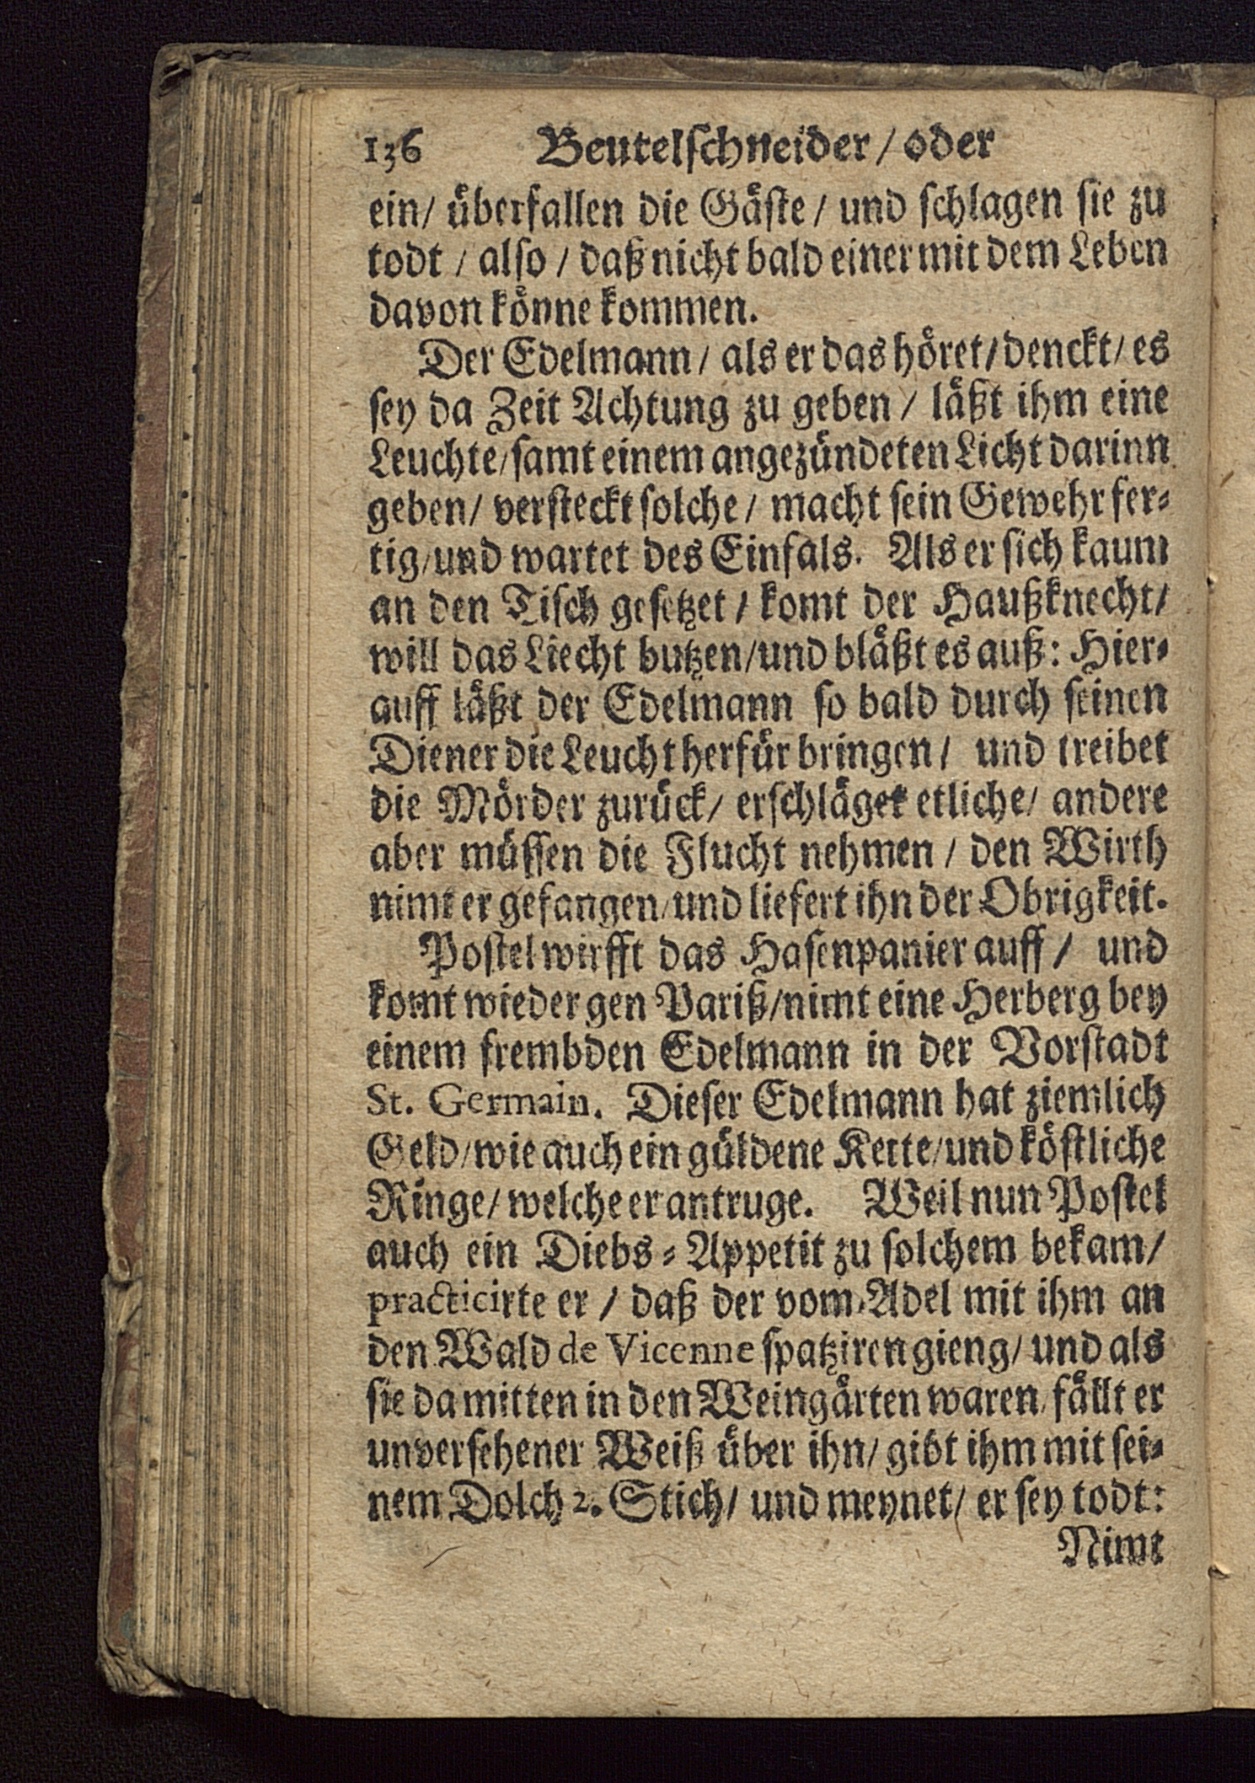 136 Beutelschneider / oder
ein / überfallen die Gäste / und schlagen sie zu
todt / also / daß nicht bald einer mit dem Leben
davon könne kommen.
Der Edelmann / als er das höret / denckt / es
sey da Zeit Achtung zu geben / läßt ihm eine
Leuchte / samt einem angezündeten Licht darinn
geben / versteckt solche / macht sein Gewehr fer-
tig / und wartet des Einfals. Als er sich kaum
an den Tisch gesetzet / komt der Haußknecht /
will das Liecht butzen / und bläßt es auß: Hier-
auff läßt der Edelmann so bald durch seinen
Diener die Leucht herfür bringen / und treibet
die Mörder zurück / erschläget etliche / andere
aber müssen die Flucht nehmen / den Wirth
nimt er gefangen / und liefert ihn der Obrigkeit.
Postel wirfft das Hasenpanier auff / und
komt wieder gen Pariß / nimt eine Herberg bey
einem frembden Edelmann in der Vorstadt
St. Germain. Dieser Edelmann hat ziemlich
Geld / wie auch ein güldene Kette / und köstliche
Ringe / welche er antruge. Weil nun Postel
auch ein Diebs-Appetit zu solchem bekam /
practicirte er / daß der vom Adel mit ihm an
den Wald de Vicenne spatziren gieng / und als
sie da mitten in den Weingärten waren / fällt er
unversehener Weiß über ihn / gibt ihm mit sei-
nem Dolch 2. Stich / und meynet / er sey todt:
Nimt